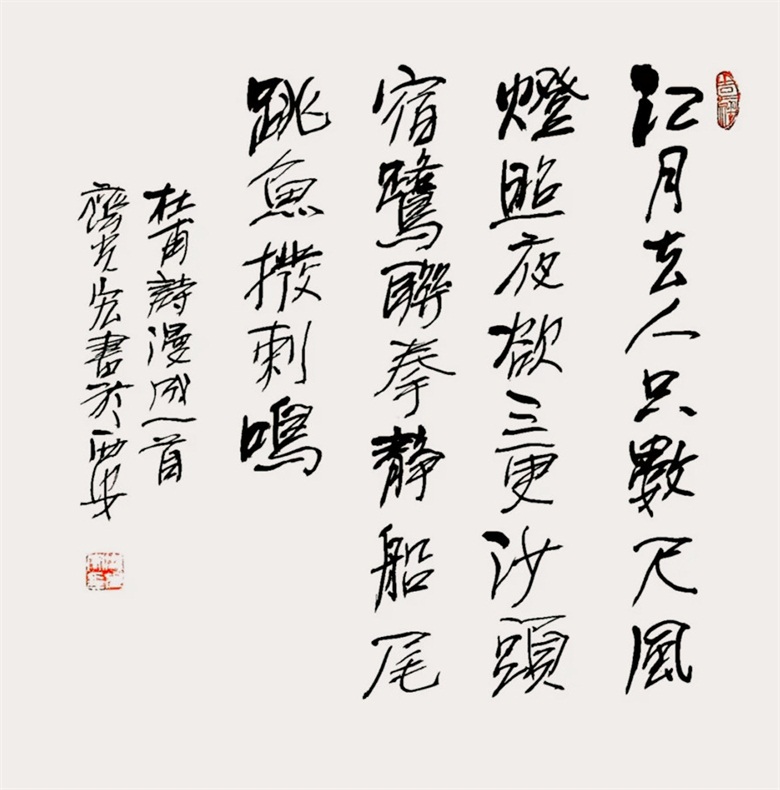 江月去人只數尺風
燈照夜欲三更沙頭
宿鷺聯拳靜船尾
跳魚撥刺鳴
杜甫詩漫成一首
齊光宏書於西安
吉祥